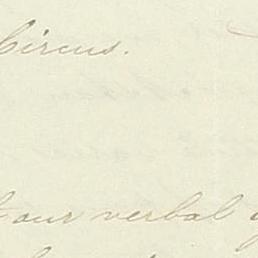 Circus.
our verbal